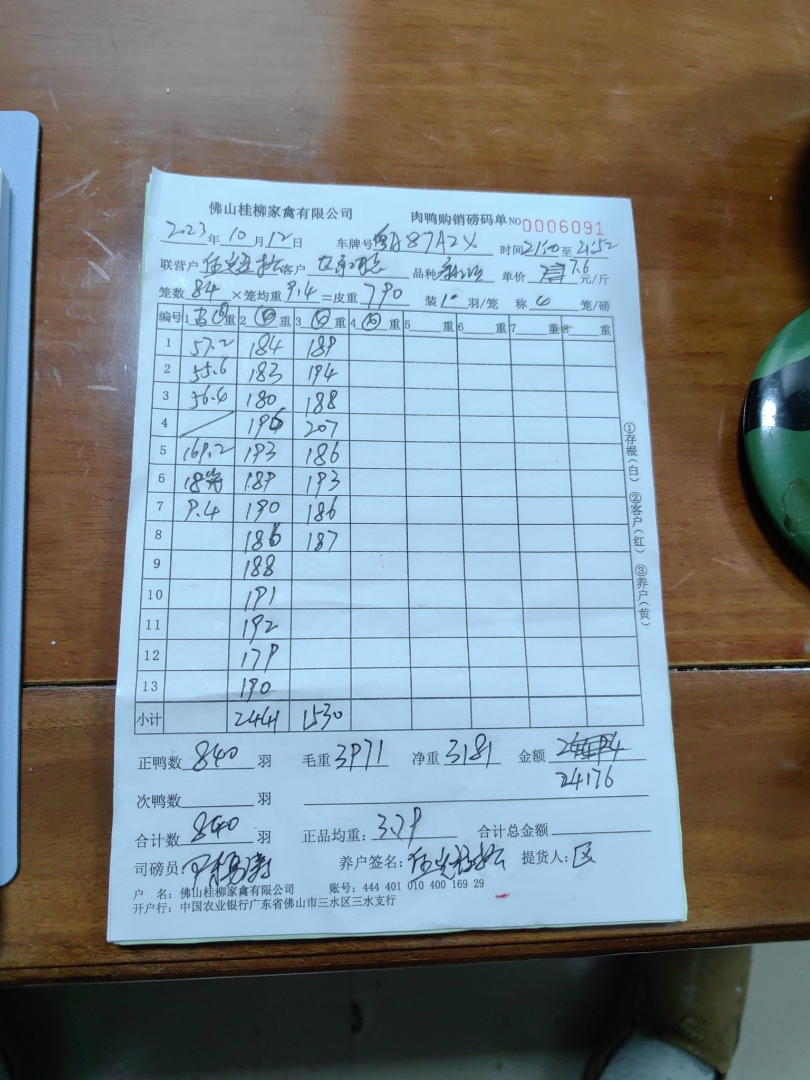 佛山桂柳家禽有限公司 肉鸭购销磅码单 NO 0006091
2023年10月12日 车牌号粤A87A2X 时间21:50至21:52
联营户 客户 品种 单价 7.6 元/斤
笼数84×笼均重9.4=皮重790 装10羽/笼 称 笼/磅
编号 1 重 2 重 3 重 4 重 5 重 6 重 7 重 8 重
1 57.2 184 189
2 55.6 183 194
3 56.4 180 188
4 196 207
5 169.2 193 186
6 18 189 193
7 9.4 190 186
8 186 187
9 188
10 191
11 192
12 179
13 190
小计 2441 1530
正鸭数840羽 毛重3971 净重3181 金额
24176
次鸭数 羽
合计数840羽 正品均重:3.79 合计总金额
司磅员: 养户签名: 提货人:区
户 名:佛山桂柳家禽有限公司 账号:444 401 010 400 169 29
开户行:中国农业银行广东省佛山市三水区三水支行
①存根(白) ②客户(红) ③养户(黄)